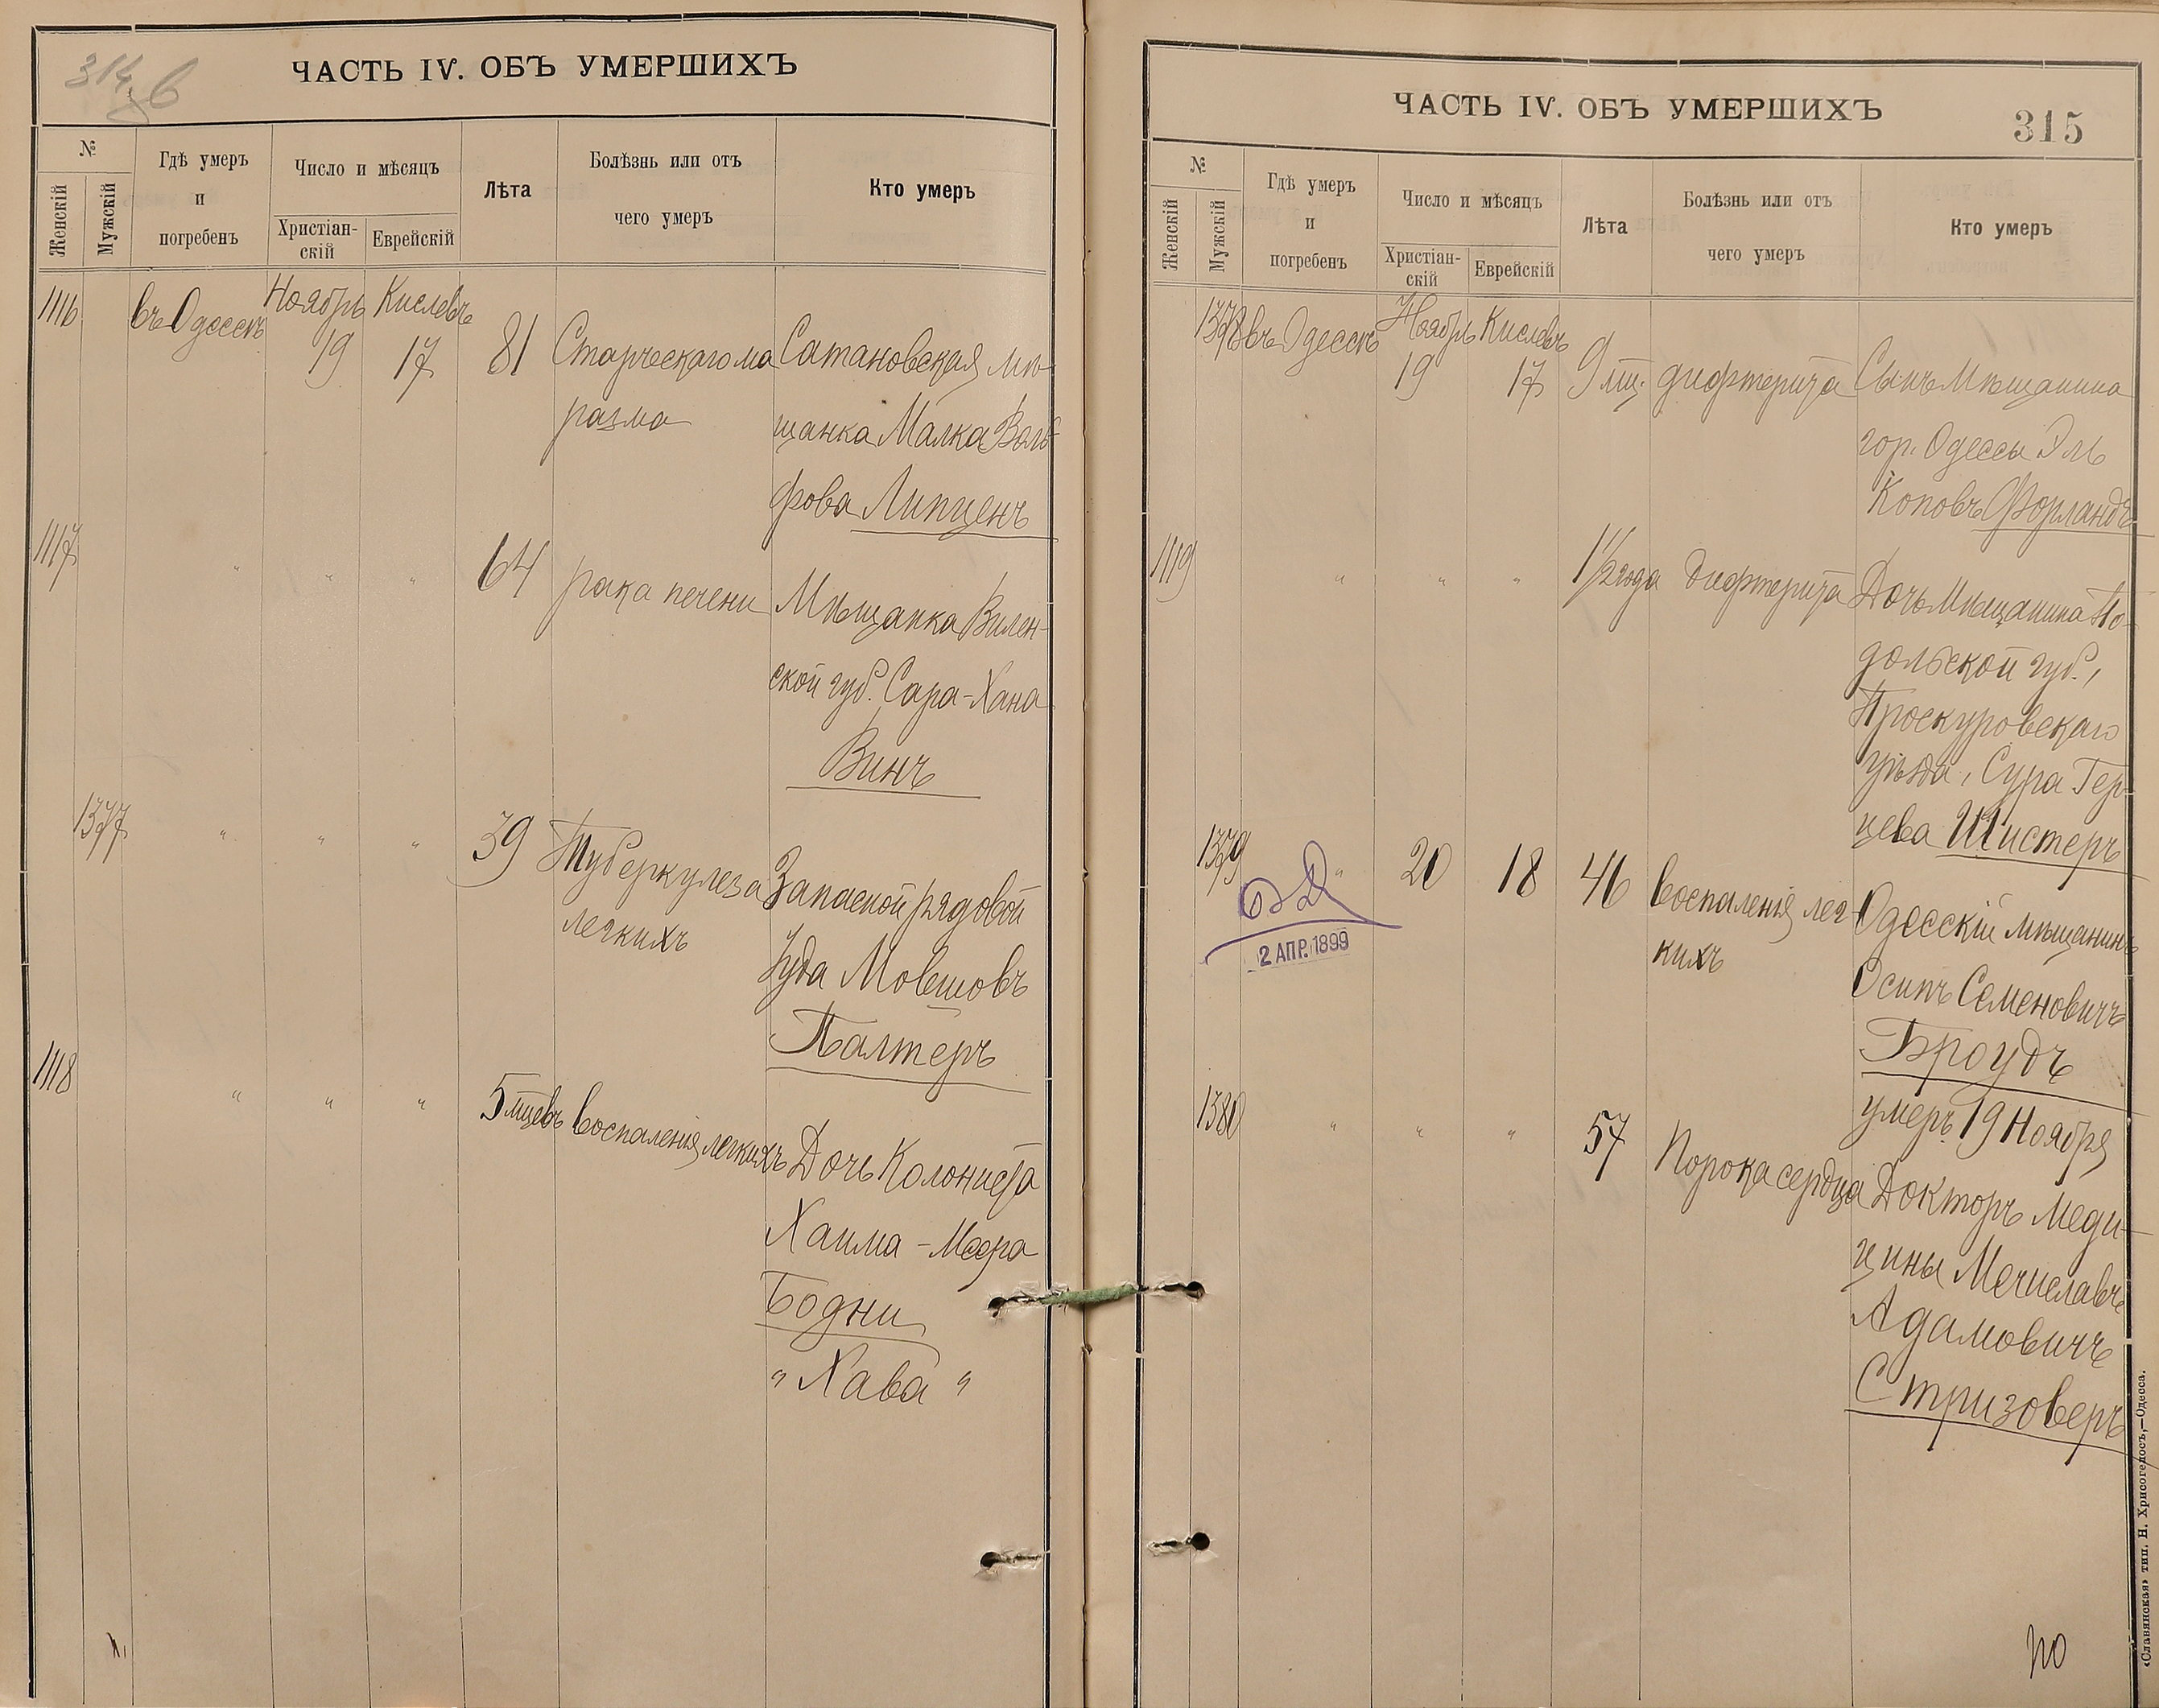 314 в
ЧАСТЬ IV. ОБЪ УМЕРШИХЪ
№
Женскій
Мужскій
Гдѣ умеръ
и
погребенъ
Число и мѣсяцъ
Христіан-
скій
Еврейскій
Лѣта
Болѣзнь или отъ
чего умеръ
Кто умеръ
1116 въ Одессѣ Ноябрь 19 Кислевъ 17 81 Старческаго ма Сатановская мѣ-
разма щанка Малка Воль-
фова Липценъ
1117 " " " 64 рака печени Мѣщанка Вилен-
ской губ. Сара-Хана
Винъ
1377 " " " 39 Туберкулеза Запасной рядовой
легкихъ Іуда Мовшовъ
Палтеръ
1118 " " " 5 мцевъ воспаленія легкихъ Дочь Колониста
Хаима-Меера
Бодни
" Хава "
ЧАСТЬ IV. ОБЪ УМЕРШИХЪ
315
№
Женскій
Мужскій
Гдѣ умеръ
и
погребенъ
Число и мѣсяцъ
Христіан-
скій
Еврейскій
Лѣта
Болѣзнь или отъ
чего умеръ
Кто умеръ
1378 въ Одессѣ Ноябрь 19 Кислевъ 17 9 мц. дифтерита Сынъ Мѣщанина
гор. Одессы Эль
Коповъ Форландъ
1119 " " " 1 1/2 года Дифтерита Дочь Мѣщанина По-
дольской губ.,
Проскуровскаго
уѣзда, Сура Гер-
цева Шистеръ
1379 " 20 18 46 воспаленія лег- Одесскій мѣщанинъ
кихъ Осипъ Семеновичъ
2 АПР. 1899
Броудъ
умеръ 19 Ноября
1380 " " " 57 Порока сердца Докторъ меди-
цины Мечиславъ
Адамовичъ
Стризоверъ
«Славянская» тип. Н. Хрисогелосъ,—Одесса.